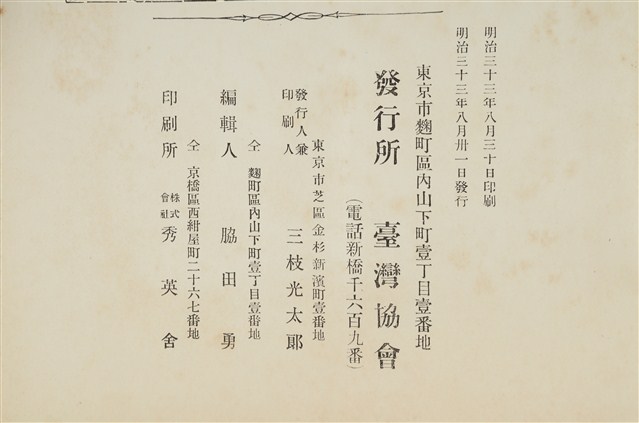 明治三十三年八月三十日印刷
明治三十三年八月卅一日發行
東京市麴町區內山下町壹丁目壹番地
發行所 臺灣協會
(電話新橋千六百九番)
東京市芝區金杉新濱町壹番地
發行人兼印刷人 三枝光太郎
仝 麴町區內山下町壹丁目壹番地
編輯人 脇田勇
仝 京橋區西紺屋町二十六七番地
印刷所 株式會社 秀英舍